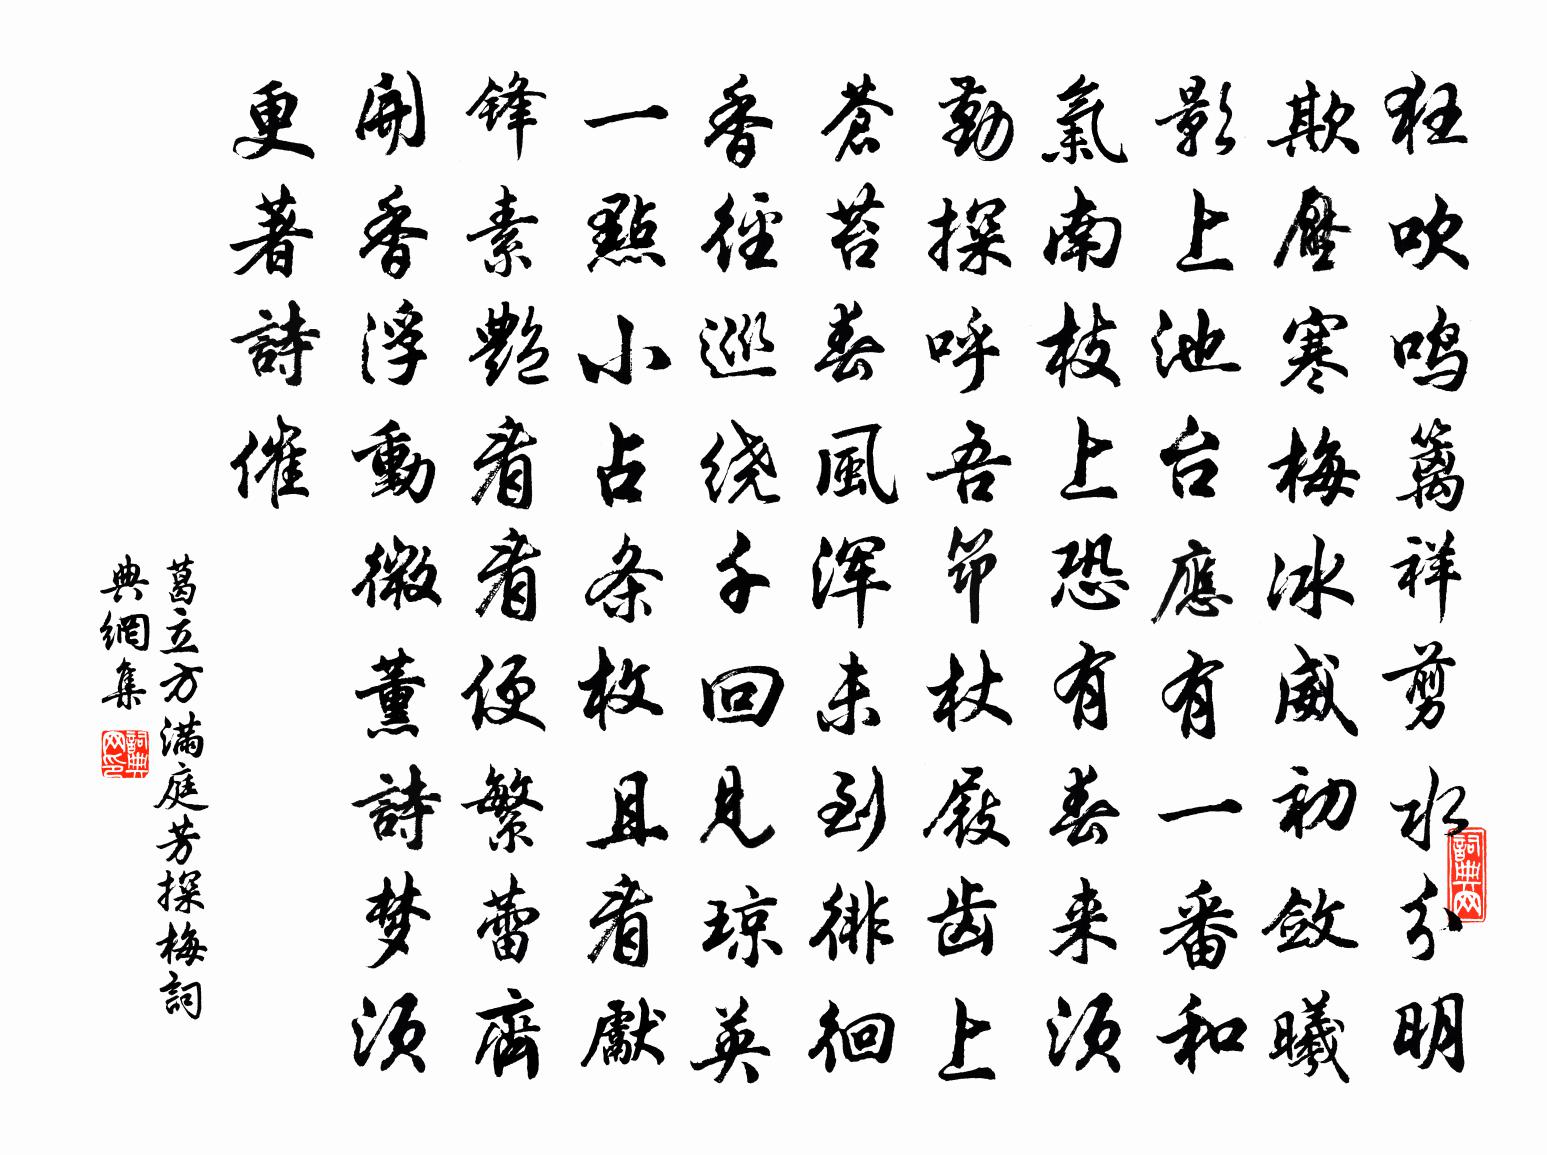 狂吹鸣篱祥剪水分明
欺压寒梅冰威初敛曦
影上池台應有一番和
氣南枝上恐有春来須
勤探呼吾笻杖屐齿上
蒼苔春風浑未到徘徊
香徑巡绕千回见琼英
一點小占条枚且看獻
锋素艷看看便繁蕾齊
開香浮動微薰詩梦須
更著詩催
葛立方满庭芳探梅詞
典網集
詞典网
詞典网印